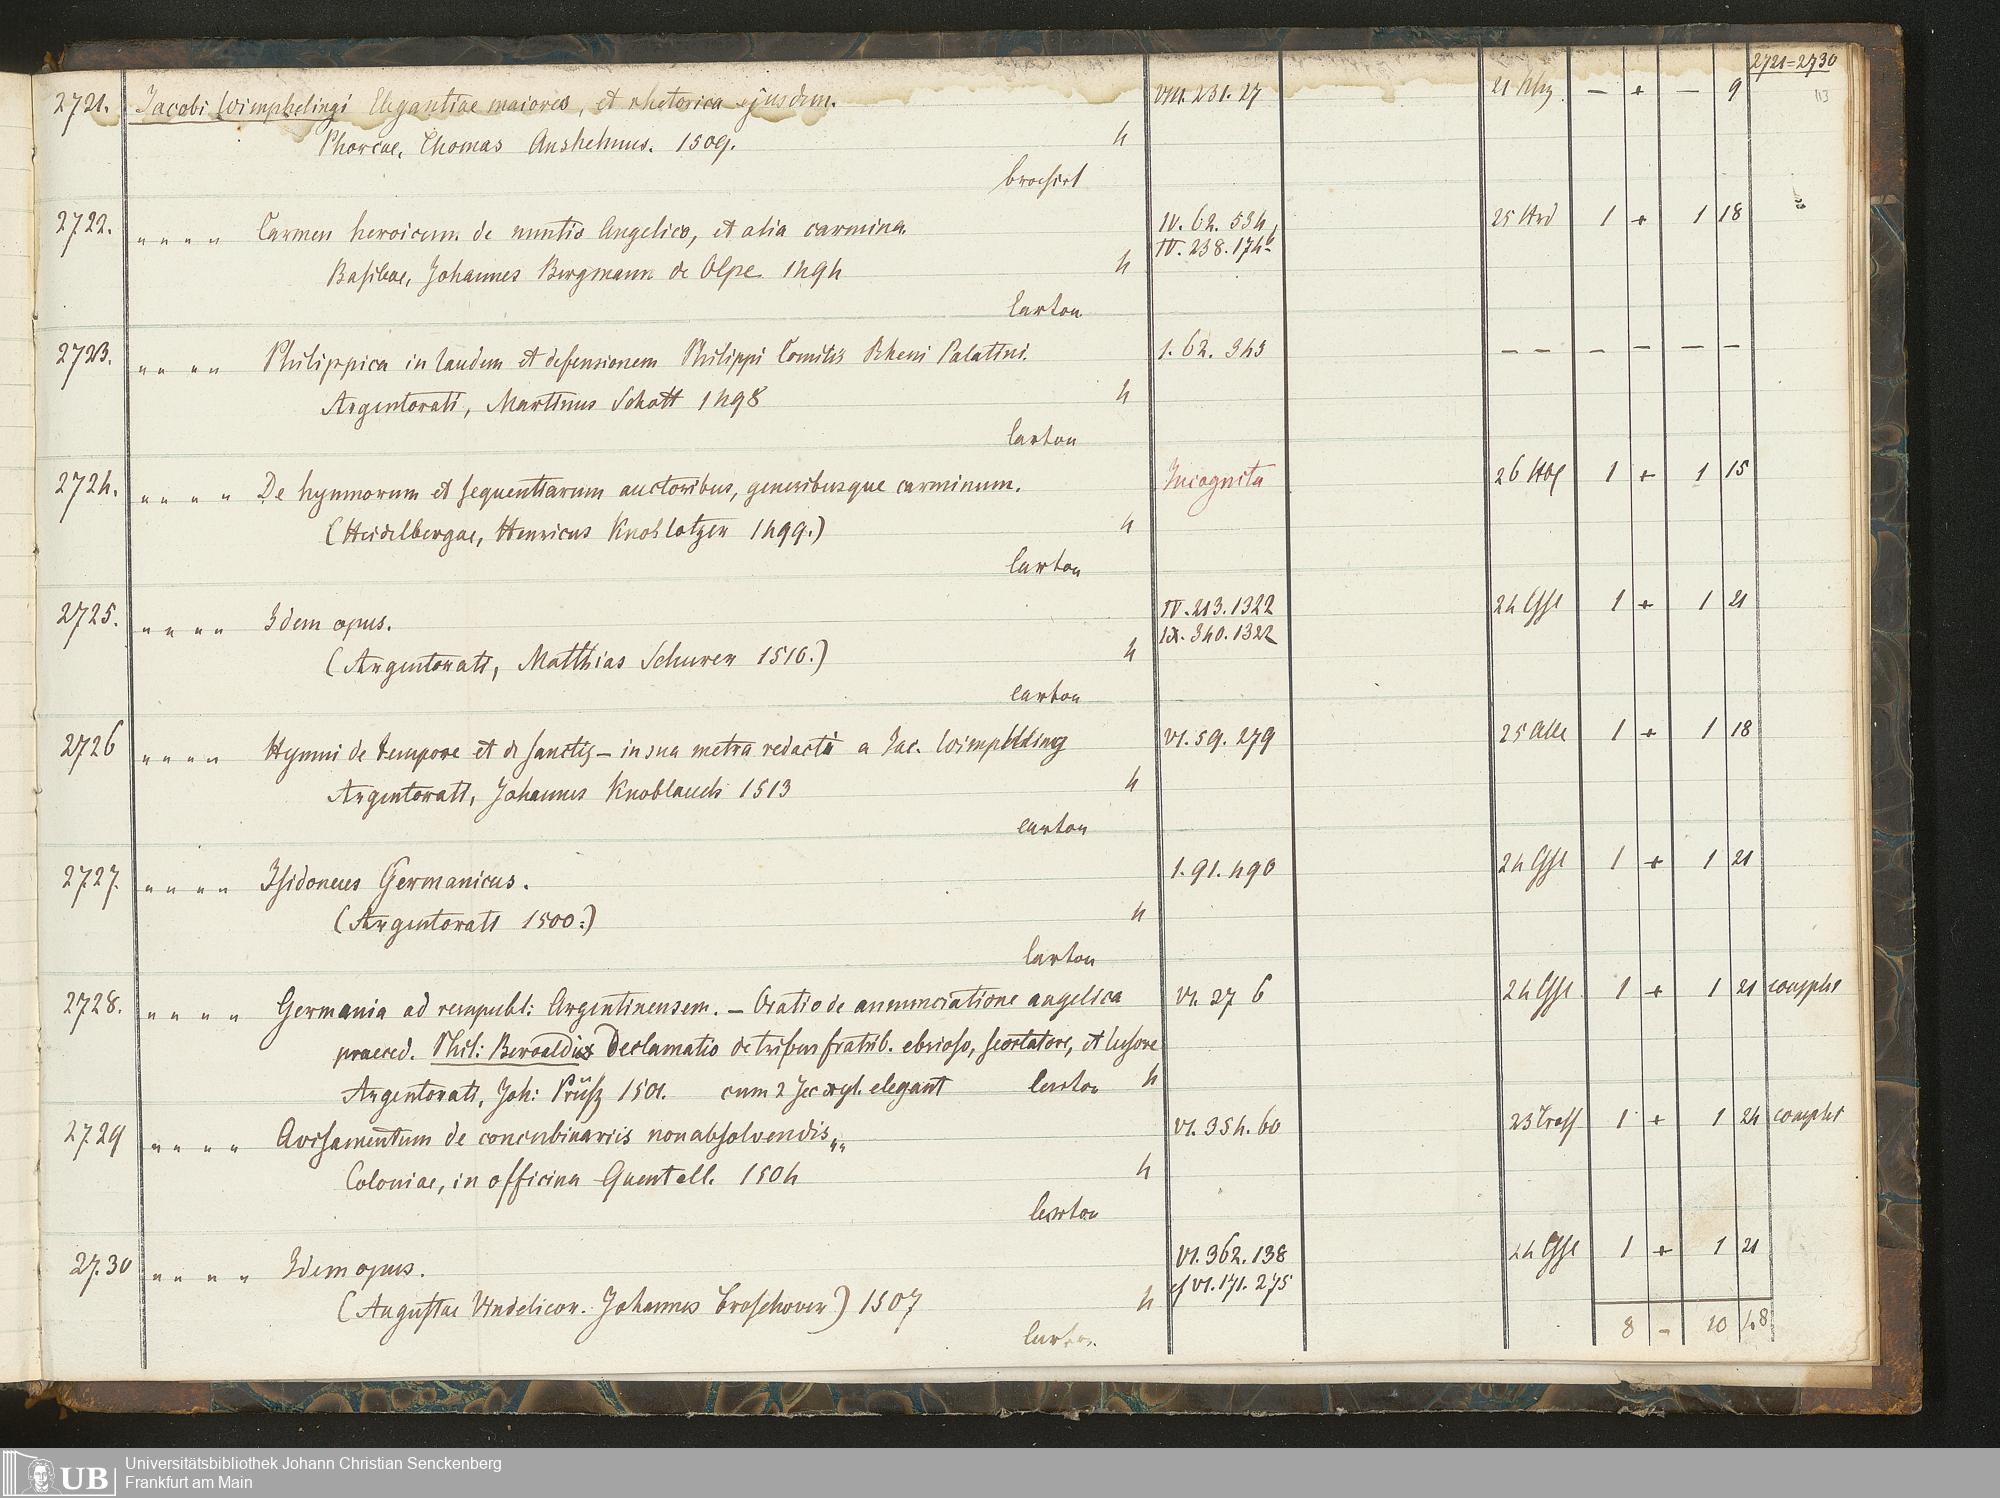 2721=2730
113
2721. Jacobi Wimphelingi Elegantiae maiores, et rhetorica ejusdem. VIII. 231. 27 — + — 9
Phorcae, Thomas Anshelmus. 1509. 4
brochirt
2722. " " " " Carmen heroicum de nuntio Angelico, et alia carmina. IV. 62. 534, 1 + 1 18
IV. 238. 174
Basileae, Johannes Bergmann de Olpe 1494 4
Carton
2723. " " " " Philippica in laudem et defensionem Philippi Comitis Rheni Palatini. 1. 62. 343 — — — — — —
Argentorati, Martinus Schott 1498 4
Carton
2724. " " " " De hymnorum et sequentiarum auctoribus, generibusque carminum. Incognita 1 + 1 15
(Heidelbergae, Henricus Knoblotzer 1499.) 4
Carton
2725. " " " " Idem opus. IV. 213. 1322 1 + 1 21
IX. 340. 1322
(Argentorati, Matthias Schurer 1510.) 4
carton
2726 " " " " Hymni de tempore et de sanctis – in sua metra redacti a Jac. Wimpheling VI. 59. 279 1 + 1 18
Argentorati, Johannes Knoblauch 1513 4
carton
2727. " " " " Isidoneus Germanicus. 1. 91. 490 1 + 1 21
(Argentorati 1500.) 4
Carton
2728. " " " " Germania ad rempubl: Argentinensem. – Oratio de annunciatione angelica VI. 27 6 1 + 1 21 complet
praeced. Phil: Beroaldi Declamatio de tribus fratrib. ebrioso, scortatore, et lusore
Argentorati, Joh: Prüsz 1501. cum 2 xyl. elegant Carton 4
2729 " " " " Avisamentum de concubinariis non absolvendis VI. 354. 60 1 + 1 24 complet
Coloniae, in officina Quentell. 1504 4
Carton
2730 " " " " Idem opus. VI. 362. 138 1 + 1 21
cf VI. 171. 275
(Augustae Vindelicor. Johannes Froschover) 1507 4
Carton.
8 – 10 48
UB
Universitätsbibliothek Johann Christian Senckenberg
Frankfurt am Main